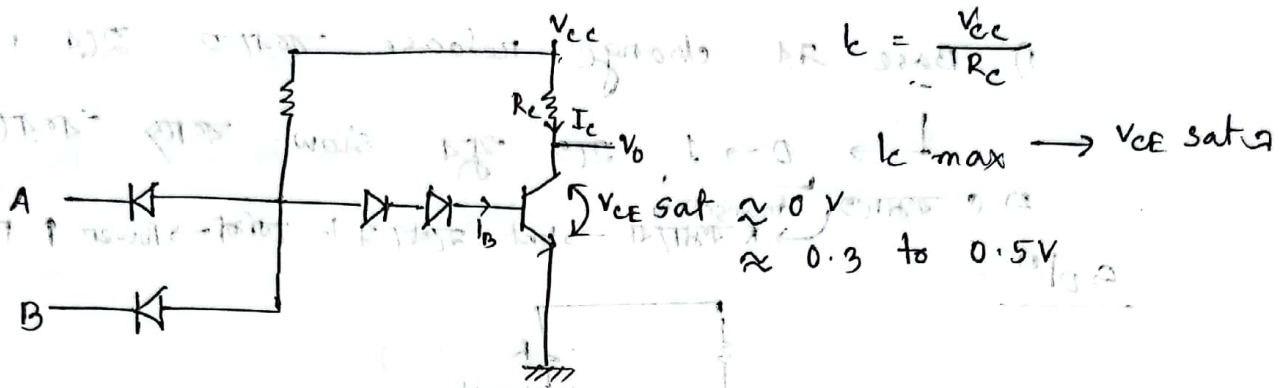 Vcc
Ic = Vcc / Rc
Rc Ic
Vo
Ic max → VCE sat
A
IB
VCE sat ≈ 0 V
≈ 0.3 to 0.5V
B